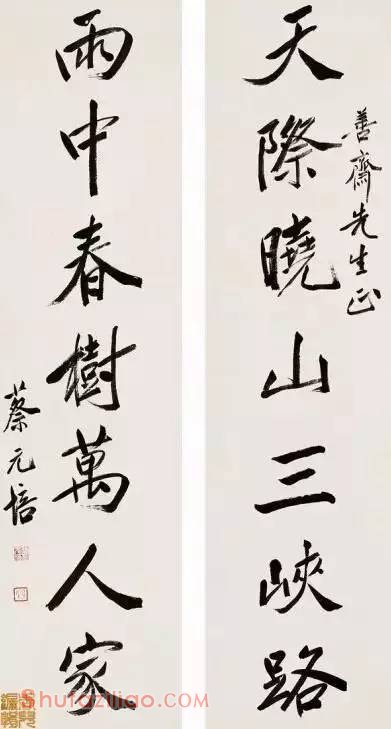 天際曉山三峽路
善齋先生正
雨中春樹萬人家
蔡元培
Shufaziliao.com